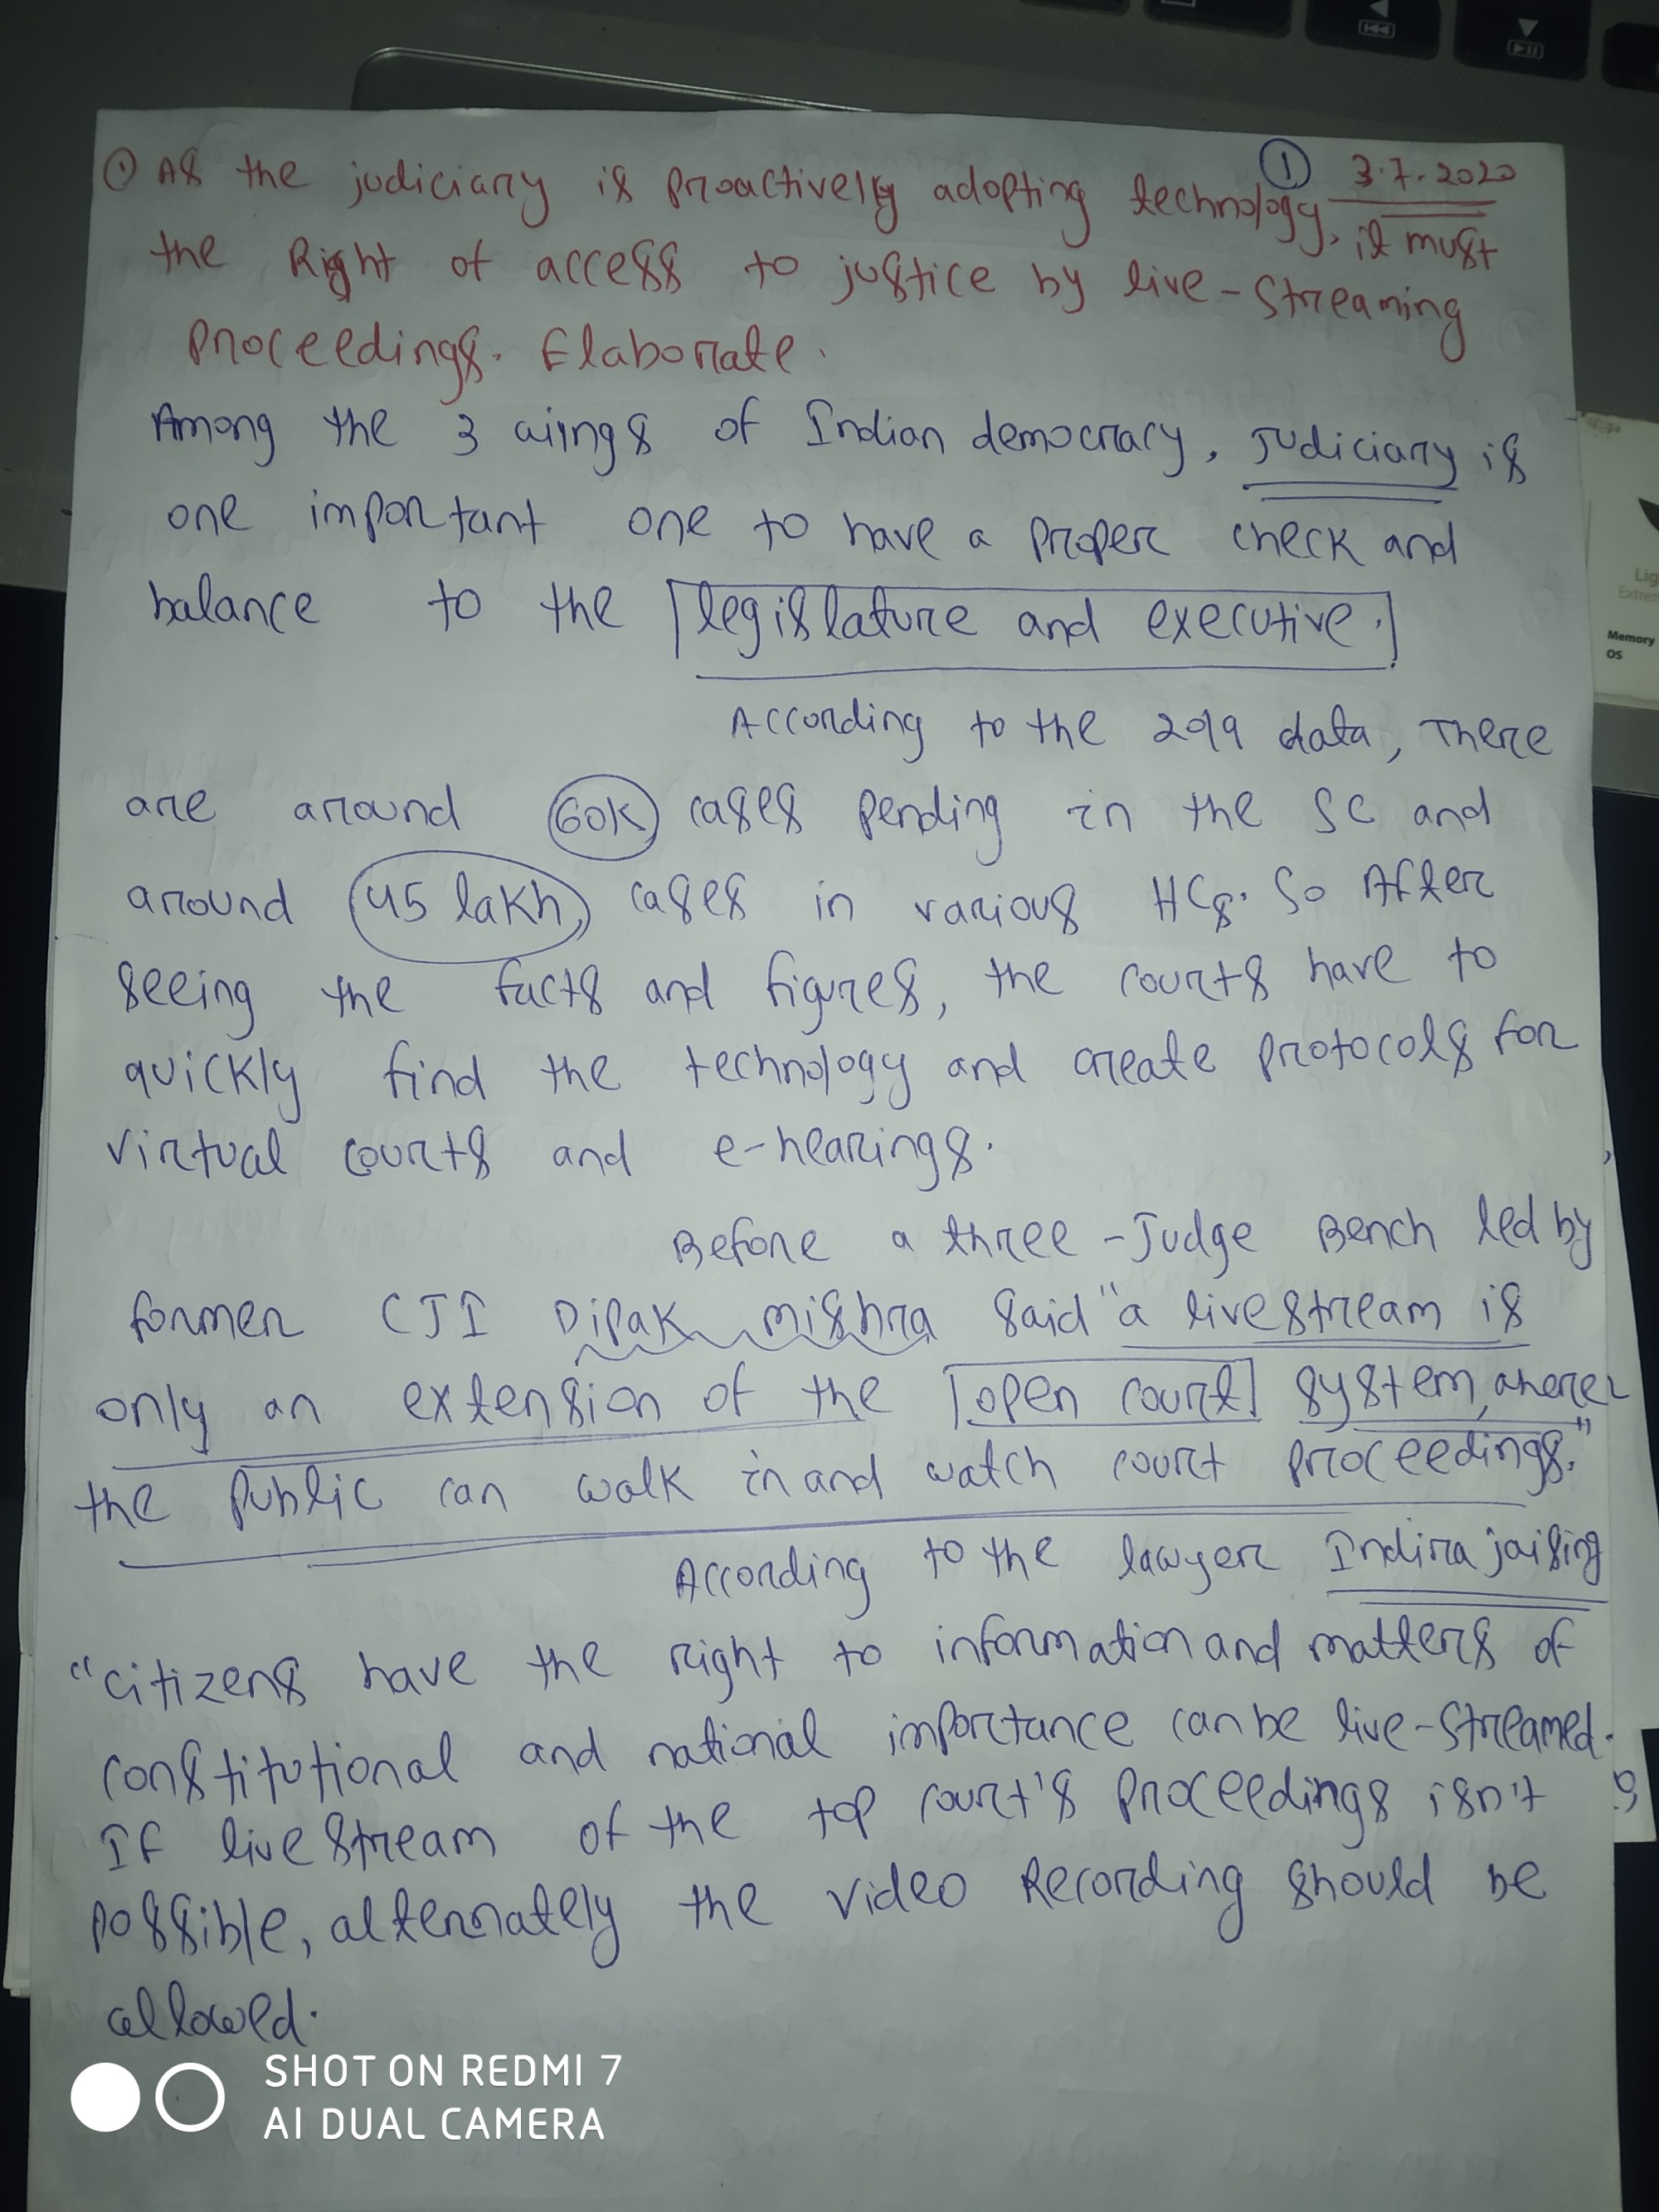 ① 3.7.2020
① As the judiciary is proactively adopting technology, it must
the Right of access to justice by live-Streaming
proceedings. Elaborate.
Among the 3 wings of Indian democracy, Judiciary is
one important one to have a proper check and
balance to the legislature and executive.
According to the 2019 data, There
are around 60K cases pending in the SC and
around 45 lakh, cases in various HCs. So After
seeing the facts and figures, the courts have to
quickly find the technology and create protocols for
virtual courts and e-hearings.
Before a three-Judge Bench led by
former CJI Dipak mishra said "a livestream is
only an extension of the open court system, where
the public can walk in and watch court proceedings."
According to the lawyer Indira jaising
"citizens have the right to information and matters of
constitutional and national importance can be live-streamed.
If livestream of the top court's proceedings isn't
possible, alternately the video Recording should be
allowed.
Lig
Extrem
Memory
OS
SHOT ON REDMI 7
AI DUAL CAMERA